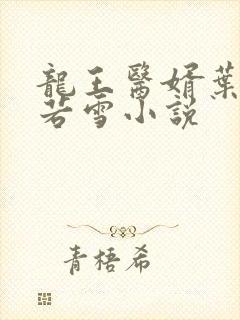 龍王醫婿葉
若雪小說
青梧希